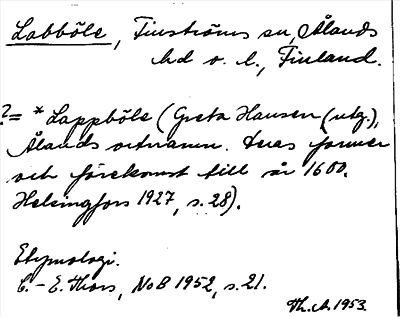 Labböle, Finströms sn, Ålands
hd o. l., Finland.
?= * Lappböle (Greta Hausen (utg.),
Ålands ortnamn. Deras former
och förekomst till år 1600.
Helsingfors 1927, s. 28).
Etymologi.
C.-E. Thors, NoB 1952, s. 21.
Th. A. 1953.